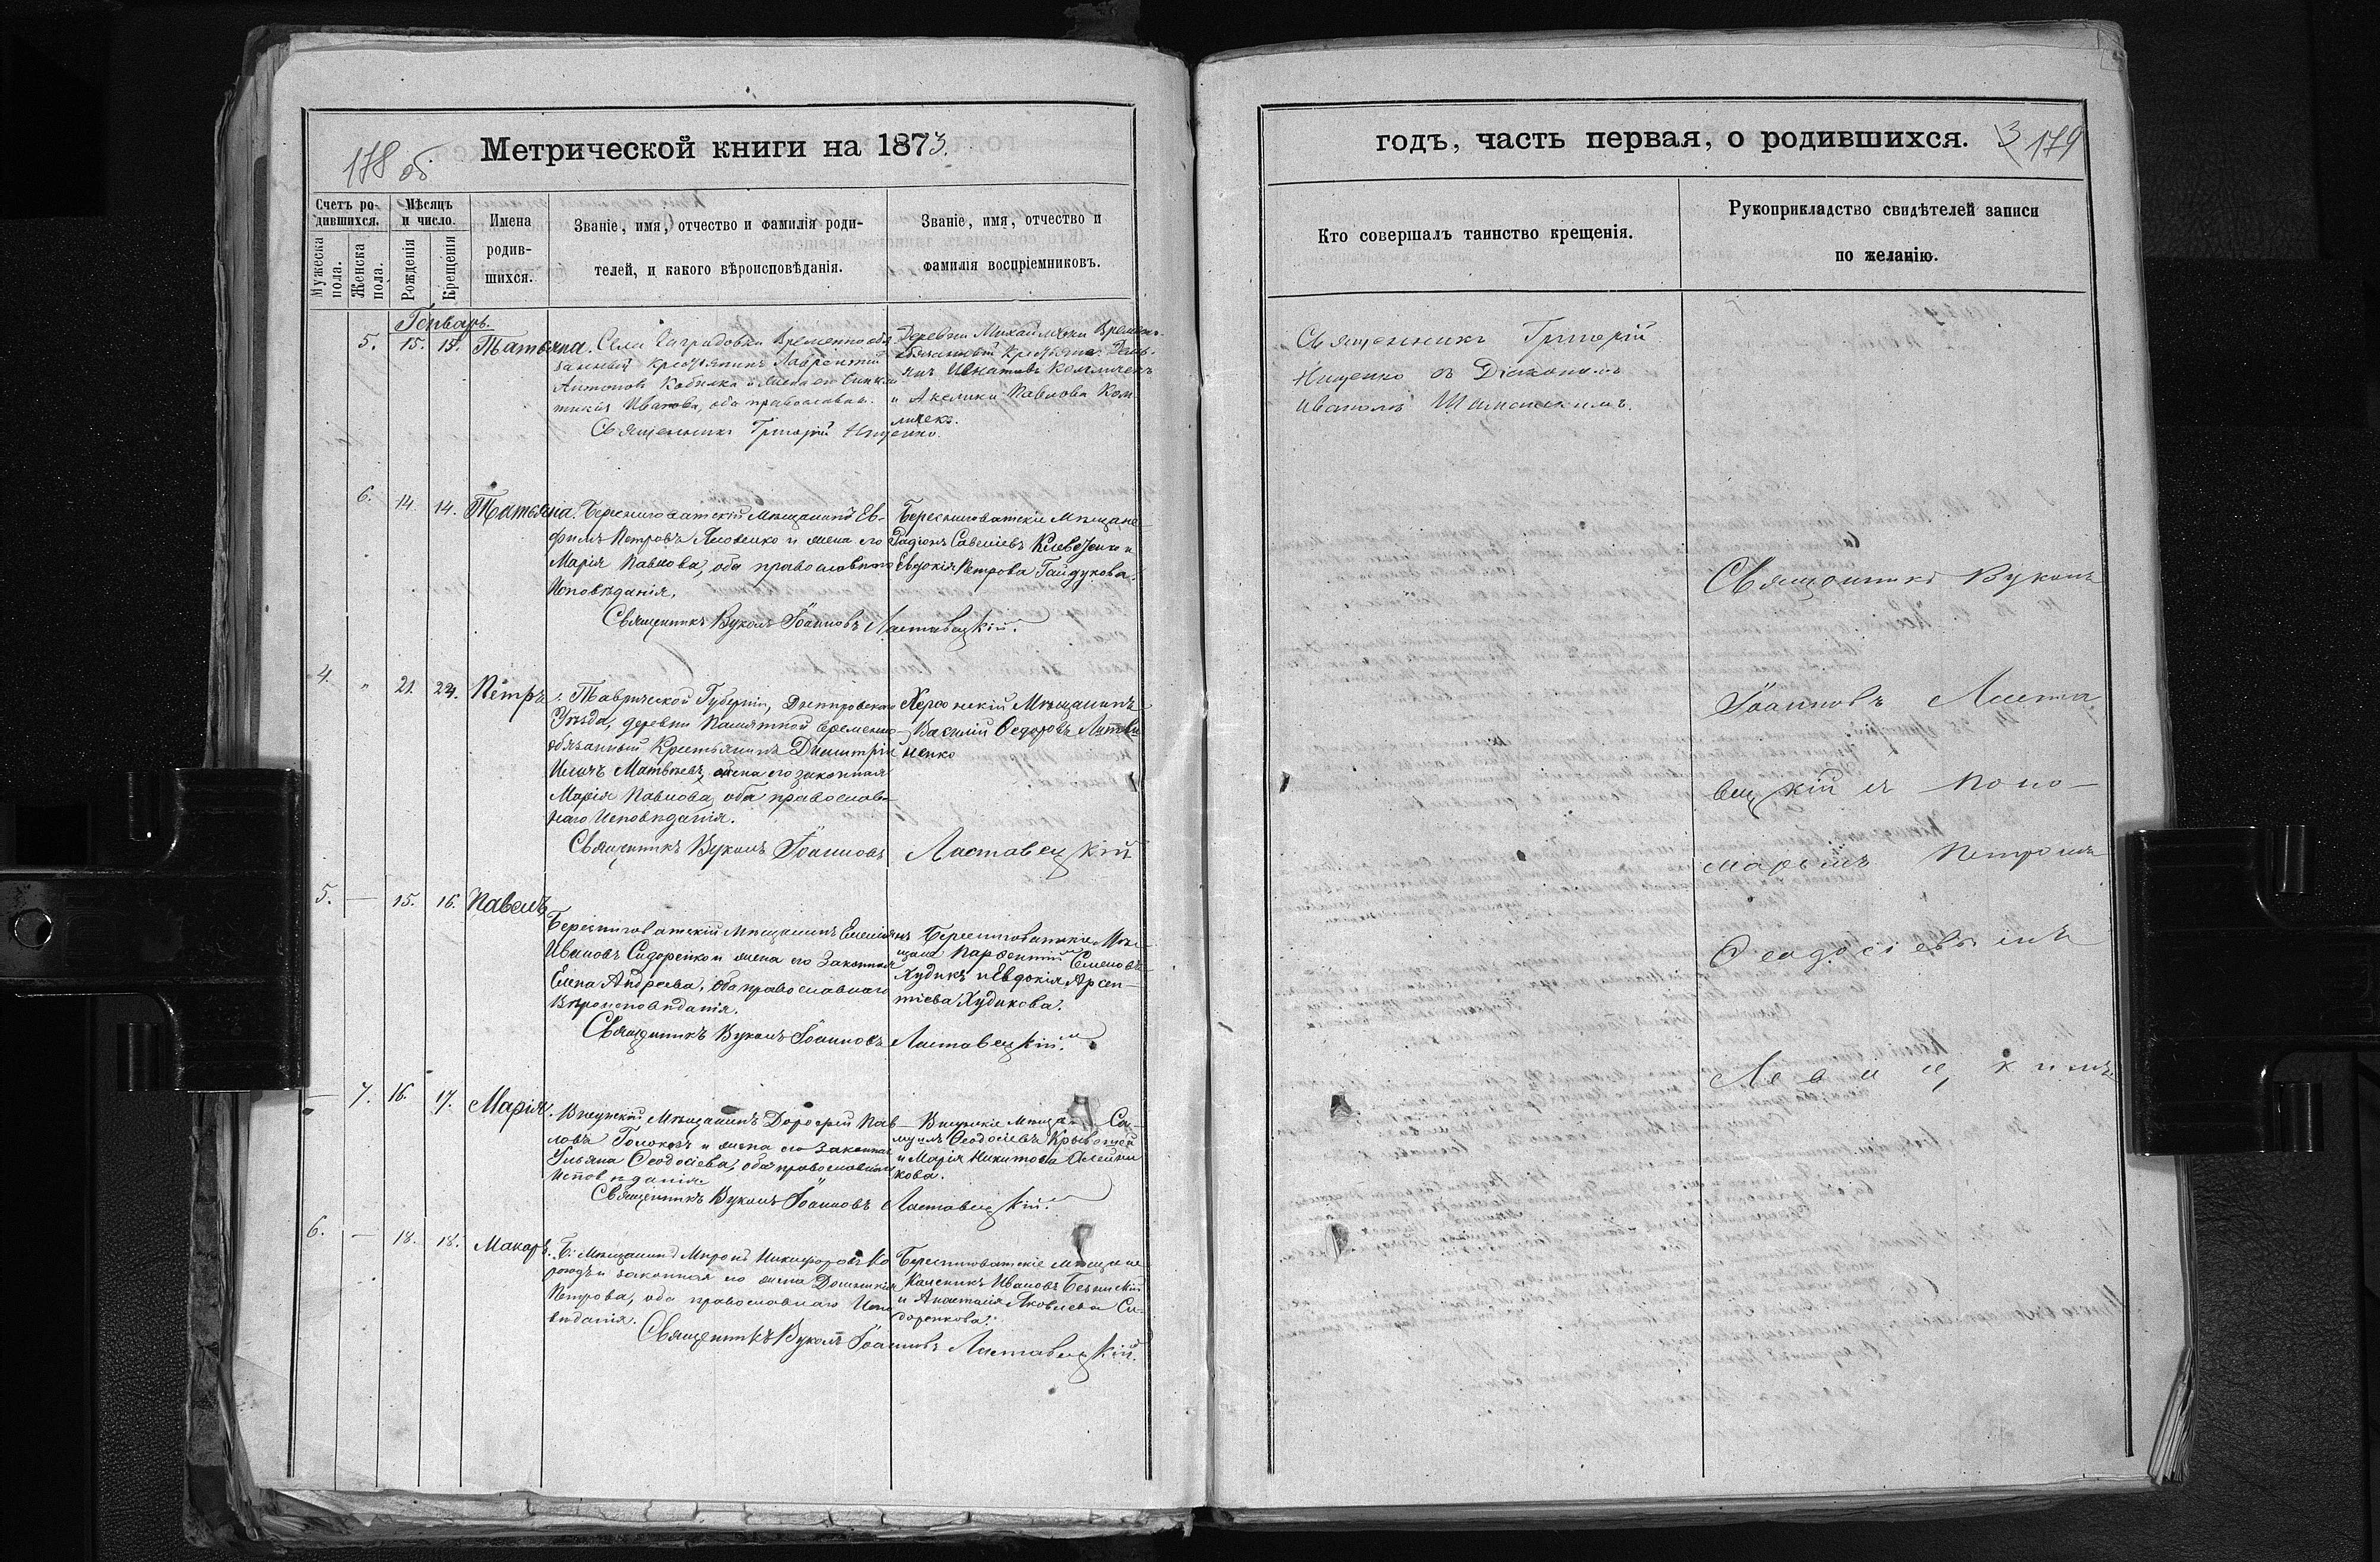 Метрической книги на 1873.
178 об
Счетъ ро-
дившихся.
Мѣсяцъ
и число.
Мужеска
пола.
Женска
пола.
Рожденія
Крещенія
Имена
родив-
шихся.
Званіе, имя, отчество и фамилія роди-
телей, и какого вѣроисповѣданія.
Званіе, имя, отчество и
фамилія воспріемниковъ.
Генварь.
5. 15. 15. Татьяна. Села
крестьянинъ Лаврентій
Антоновъ и жена его
Иванова, оба православн.
Священникъ Григорій Нищенко.
Деревни Михайловки Времен.
обязанный
Игнатовъ
и Акелина Павлова
6. 14. 14. Татьяна. Березниговатскій Мѣщанинъ Ев-
фимъ Петровъ Яковенко и жена его
Марія Павлова, оба православнаго
Исповѣданія.
Священникъ Вуколъ Іоанновъ Ластавецкій.
Березниговатскіе Мѣщане
Радіонъ Савеліевъ и
Евдокія Петрова Гайдукова.
4. " 21. 24. Петръ. Таврической Губерніи, Днепровскаго
Уѣзда, деревни временно
обязанный Крестьянинъ Димитрій
Матвѣевъ, жена его законная
Марія Павлова, оба православ-
наго Исповѣданія.
Священникъ Вуколъ Іоанновъ Ластавецкій
Херсонскій Мѣщанинъ
Василій Ѳедоровъ Литви
ненко
5. — 15. 16. Павелъ
Березниговатскій Мѣщанинъ Емельянъ
Ивановъ Сидоренко и жена его Законная
Елена Андреева, Оба православнаго
Вѣроисповѣданія.
Священникъ Вуколъ Іоанновъ Ластавецкій.
Березниговатскіе Мѣ-
щане Парѳентій Семеновъ
Худикъ и Евдокія Арсен-
тіева Худикова.
— 7. 16. 17. Марія. Висунскій Мѣщанинъ Дороѳей Пав-
ловъ и жена его Законная
Ульяна Ѳеодосіева, оба православнаго
Исповѣданія
Священникъ Вуколъ Іоанновъ Ластавецкій.
Висунскіе Мѣщане Са-
муилъ Ѳеодосіевъ
и Марія Никитова Олейни
кова.
6. — 18. 18. Макаръ. Б. Мѣщанинъ Миронъ Никифоровъ Ко
законная его жена Домникія
Петрова, оба православнаго Испо
вѣданія.
Священникъ Вуколъ Іоанновъ Ластавецкій.
Березниговатскіе Мѣщане
Каленикъ Ивановъ
и Анастасія Яковлева Си-
доренкова.
годъ, часть первая, о родившихся.
3 179
Кто совершалъ таинство крещенія.
Рукоприкладство свидѣтелей записи
по желанію.
Священникъ Григорій
Нищенко съ Діакономъ
Иваномъ
Священникъ Вуколъ
Іоанновъ Ласта
вецкій съ Поно-
маремъ Петромъ
Ѳеодосіевымъ
Левицкимъ